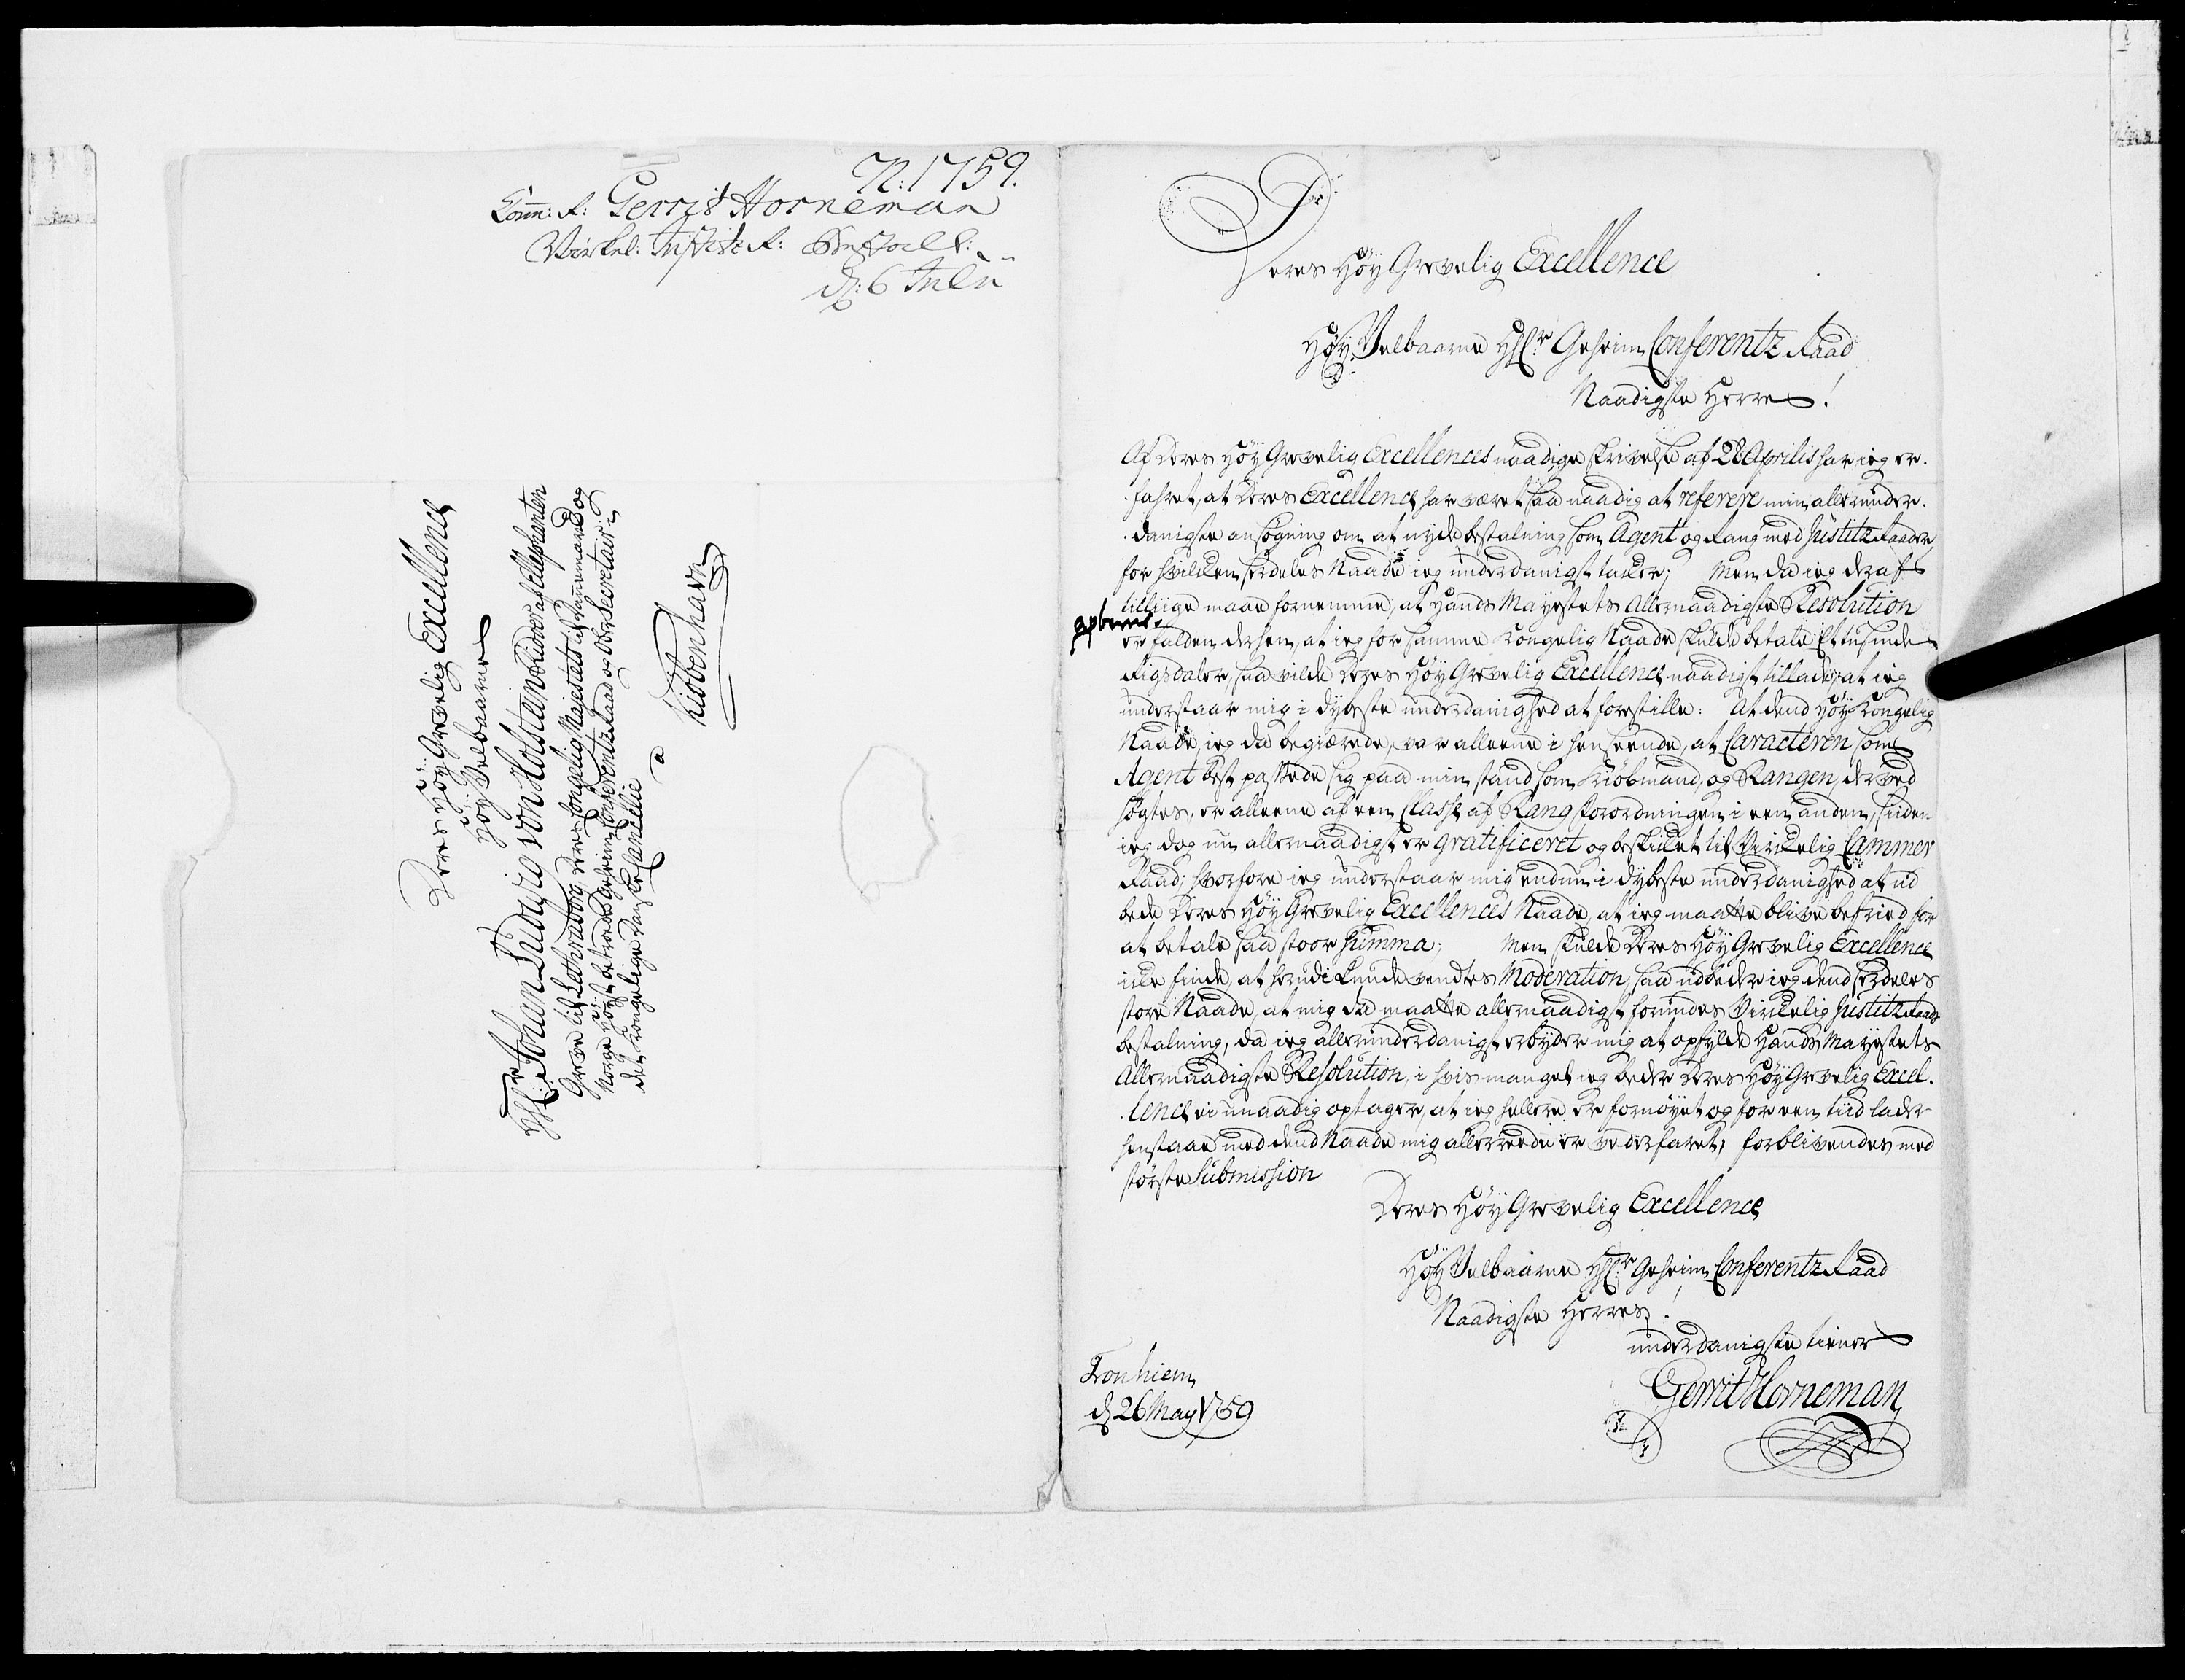 N: 1759.
Comm: R: Gerrit Horneman
Virkel: Justitz R: Bestall:
d: 6 Julii
Deres Høy Grevelig Excellence
Høy Velbaarne
Hr: Johan Ludvig von Holstein Ridder af Ellephanten
Greve til Lethraborg Deres Kongelig Majestets til Dannemark og
Norge Høyt betroede Geheim Conferentz Raad og Ober Secretair i
det Kongelige Danske Cancellie
a
Kiøbenhavn
Deres Høy Grevelig Excellence
Høy Velbaarne Hr: Geheim Conferentz Raad
Naadigste Herre!
Af Deres Høy Grevelig Excellences naadige skrivelse af 28 Aprilis har ieg er-
fahret, at Deres Excellence har været saa naadig at referere min allerunder-
danigste ansøgning om at nyde bestalning som Agent og Rang med Justitz Raader,
for hvilken serdeles Naade ieg underdanigst takker; Men da ieg deraf
tilliige maae fornemme, at Hands Mayestets Allernaadigste Resolution
er falden derhen, at ieg for samme Kongelig Naade skulde betale Et tusinde
Rigsdaler, saa vilde Deres Høy Grevelig Excellence naadigst tillade, at ieg
understaar mig i dybeste underdanighed at forestille: At dend høy Kongelig
Naade, ieg da begiærede, var alleene i henseende, at Caracteren som
Agent best passede sig paa min stand som Kiøbmand, og Rangen, derved
søgtes, er alleene af een Classe af Rang Forordningen i een anden, siiden
ieg dog nu allernaadigst er gratificeret og beskikket til Virkelig Cammer
Raad; hvorfore ieg understaar mig endnu i dybeste underdanighed at ud
bede Deres Høy Grevelig Excellences Naade, at ieg maatte blive befried for
at betale saa stoor Summa; Men skulde Deres Høy Grevelig Excellence
ikke finde, at herudi kunde ventes Moderation, saa udbeder ieg dend serdeles
store Naade, at mig da maatte allernaadigst forundes Virkelig Justitz Raads
bestalning, da ieg allerunderdanigst erbyder mig at opfylde Hands Mayestets
Allernaadigste Resolution, i hvis mangel ieg beder Deres Høy Grevelig Excel-
lence ei unaadig optager, at ieg hellere er fornøyet og for een tiid lader
henstaae med dend Naade mig allerreede er vederfaret, forblivendes med
største Submission
Deres Høy Grevelig Excellence
Høy Velbaarne Hr: Geheim Conferentz Raad
Naadigste Herres!
underdanigste tiener
Gerrit Horneman
Tronhiem
d 26 May 1759